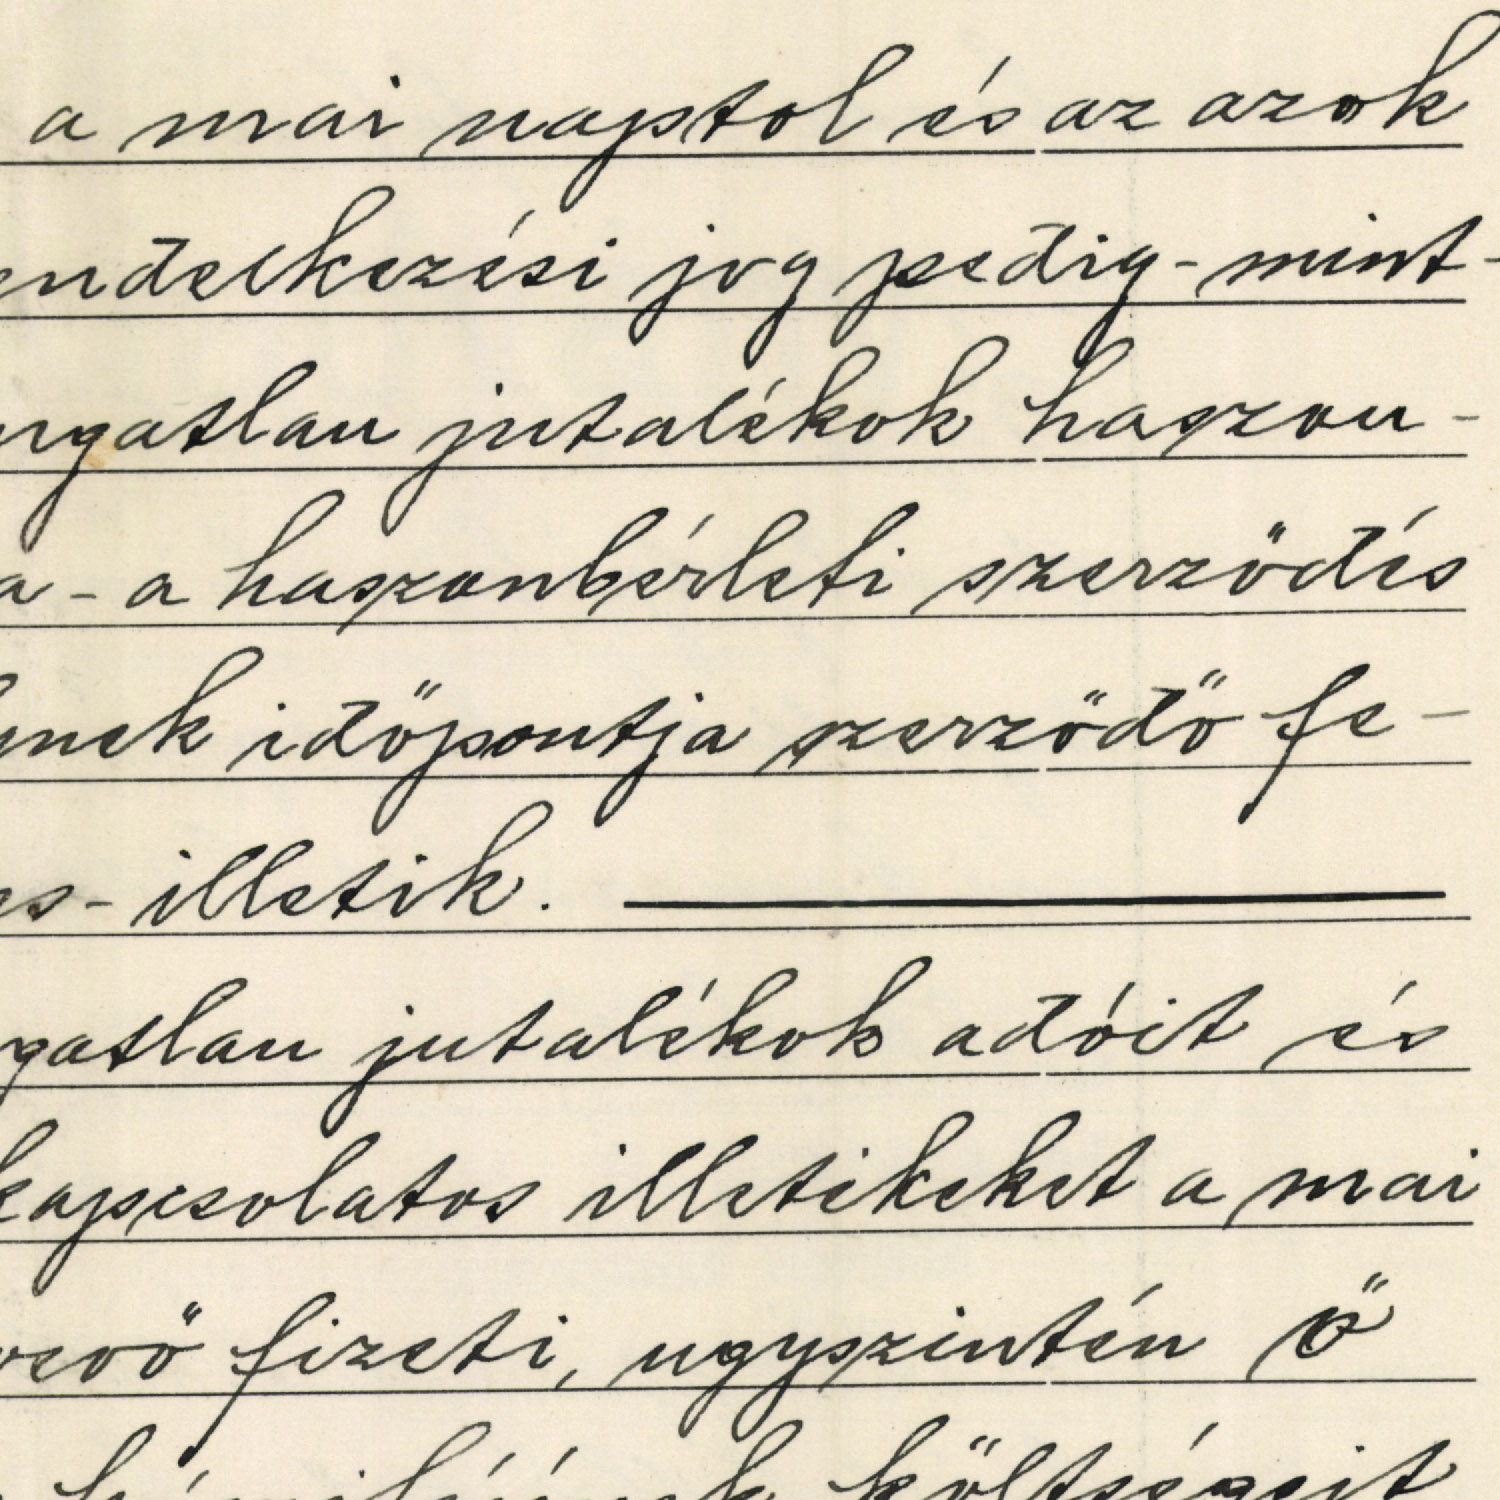 a mai naptol és az azok
endelkezési jog pedig - mint -
ngatlan jutalékok haszon -
a - a haszonbérleti szerződés
nek időpontja szerződő fe -
es - illetik.
gatlan jutalékok adóit és
kapcsolatos illetékeket a mai
vevő fizeti, ugyszintén ő
költségeit